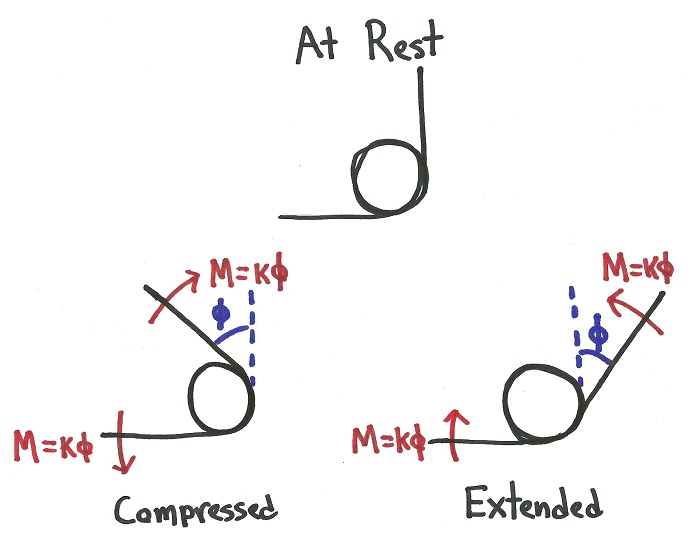 At Rest
M=Kϕ
ϕ
M=Kϕ
Compressed
M=Kϕ
ϕ
M=Kϕ
Extended